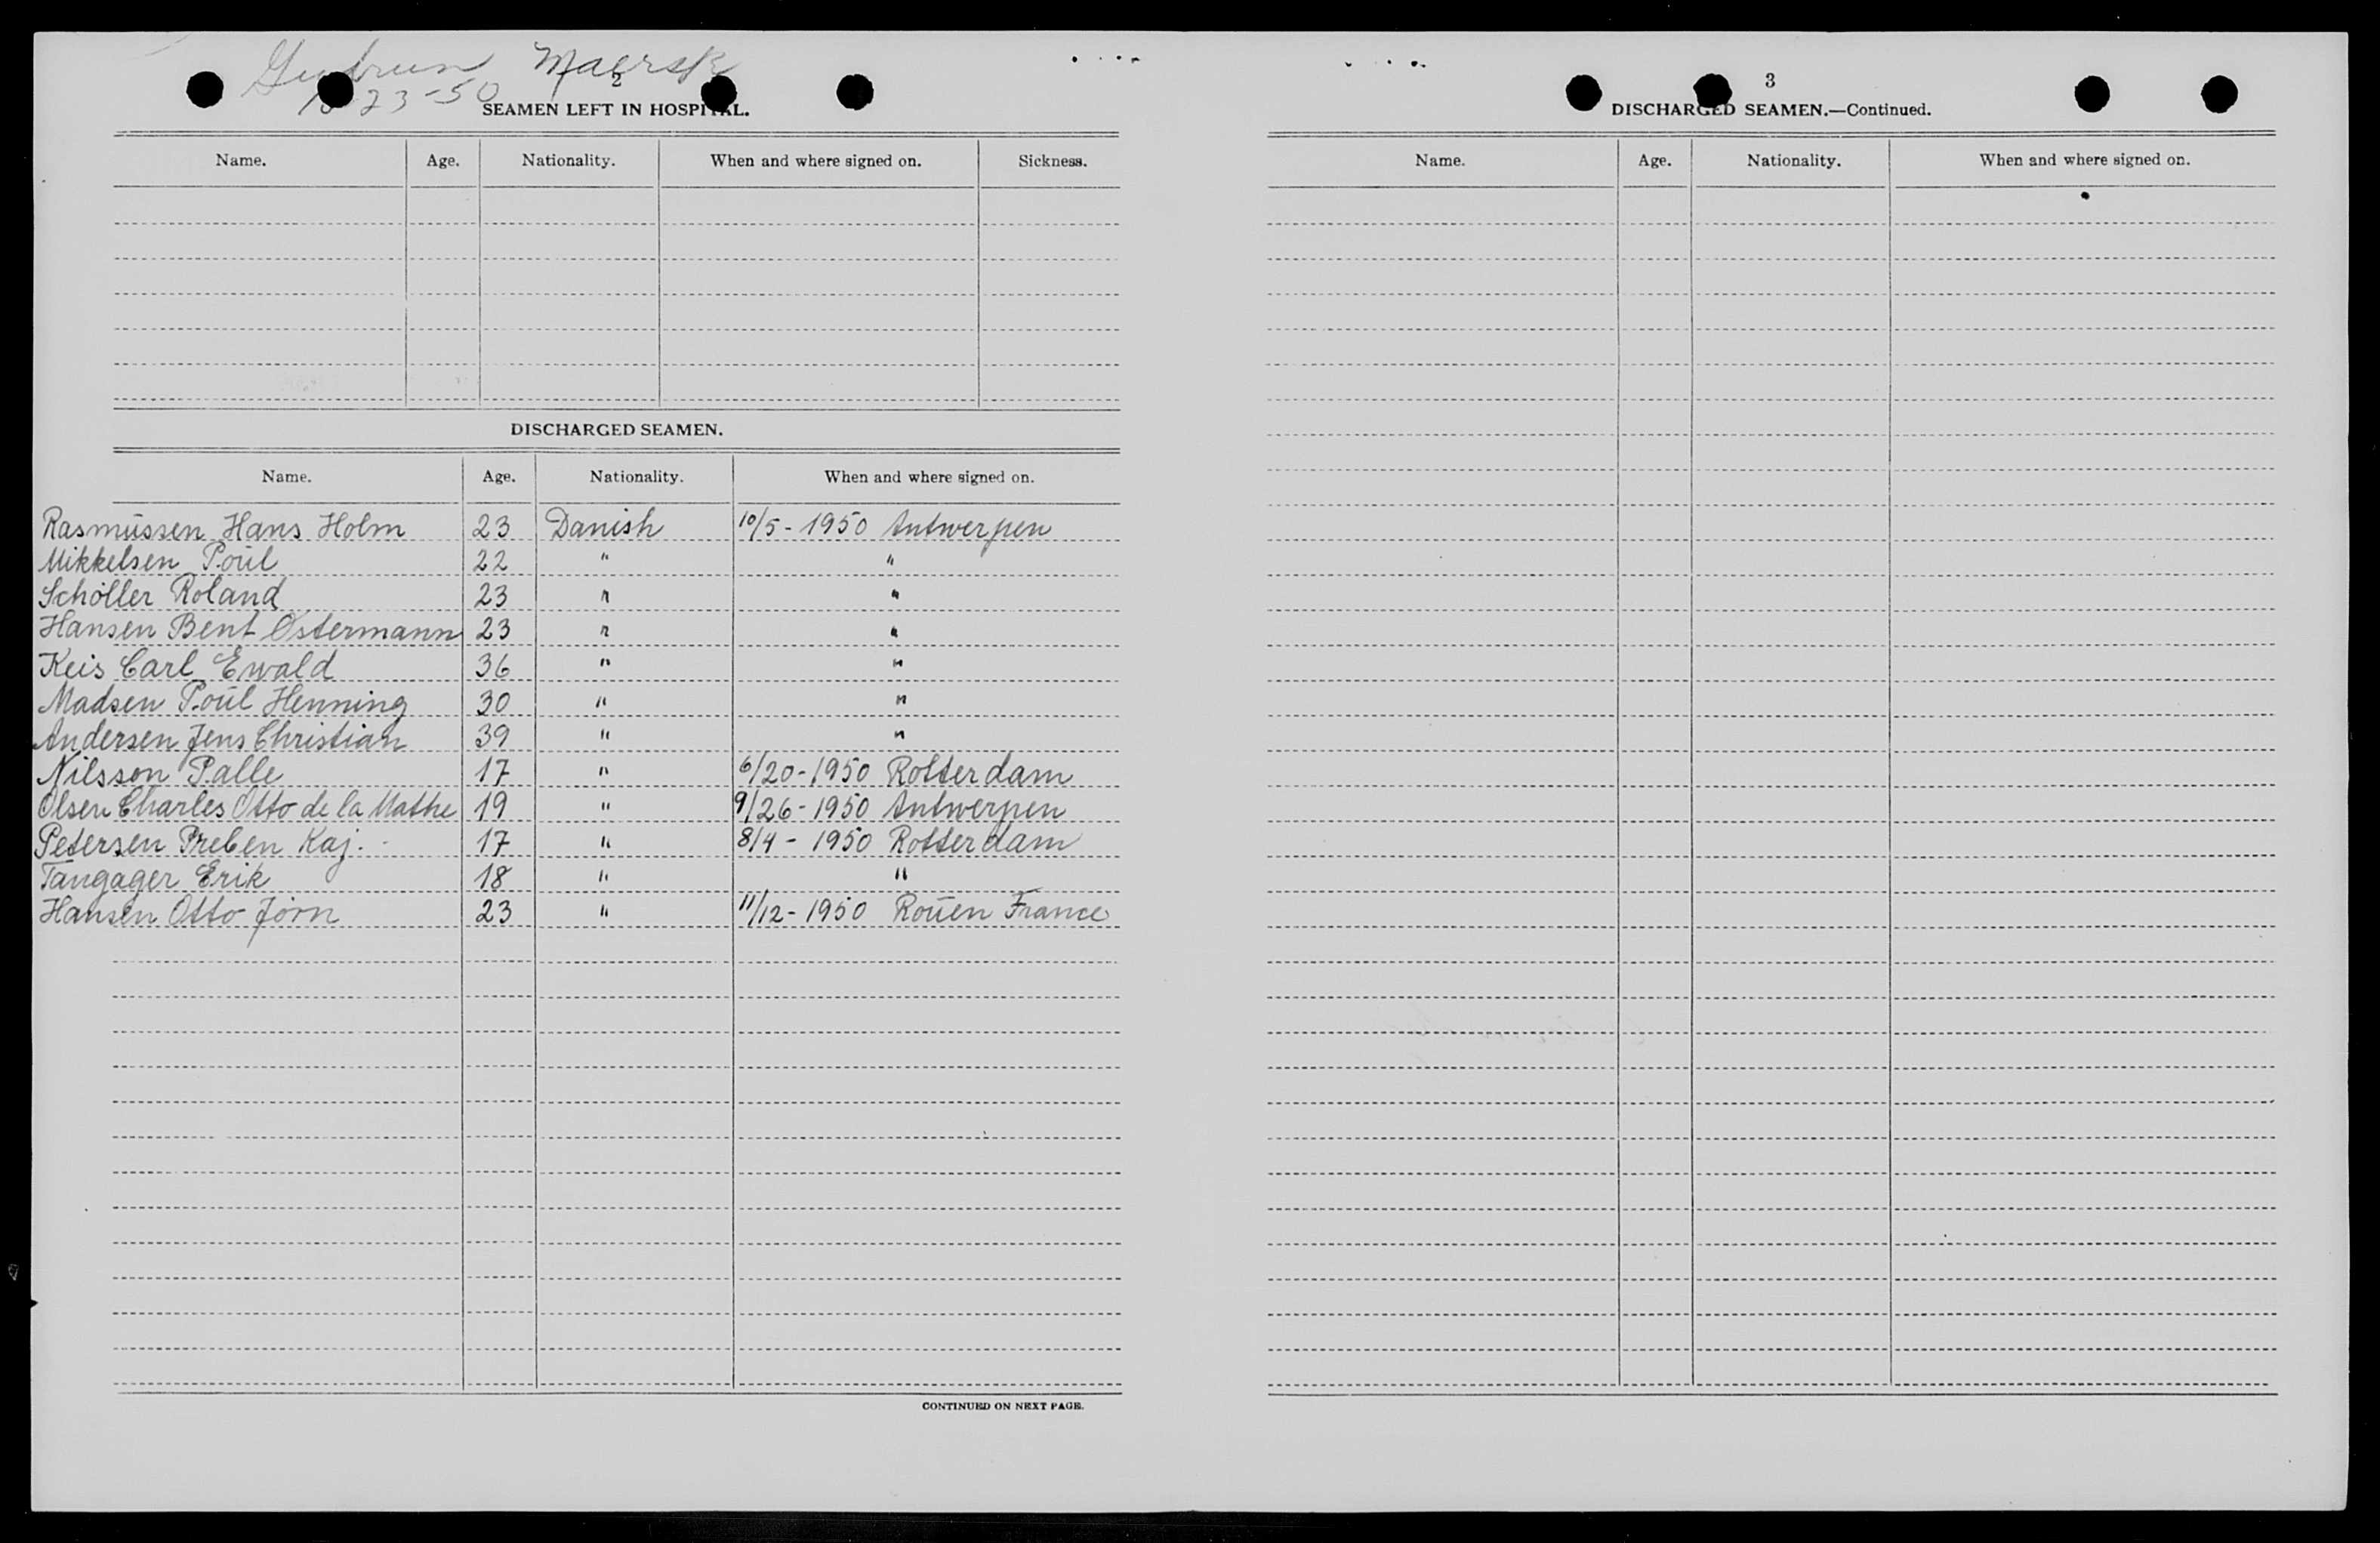 Gudrun Maersk
23-50
2
SEAMEN LEFT IN HOSPITAL.
Name. Age. Nationality. When and where signed on. Sickness.
DISCHARGED SEAMEN.
Name. Age. Nationality. When and where signed on.
Rasmussen Hans Holm 23 Danish 10/5 - 1950 Antwerpen
Mikkelsen Poul 22 " "
Schöller Roland 23 " "
Hansen Bent Ostermann 23 " "
Keis Carl Ewald 36 " "
Madsen Poul Henning 30 " "
Andersen Jens Christian 39 " "
Nilsson Palle 17 " 6/20 - 1950 Rotterdam
Olsen Charles Otto de la Mathe 19 " 9/26 - 1950 Antwerpen
Petersen Preben Kaj. 17 " 8/4 - 1950 Rotterdam
Tangager Erik 18 " "
Hansen Otto Jörn 23 " 11/12 - 1950 Rouen France
CONTINUED ON NEXT PAGE.
3
DISCHARGED SEAMEN.—Continued.
Name. Age. Nationality. When and where signed on.